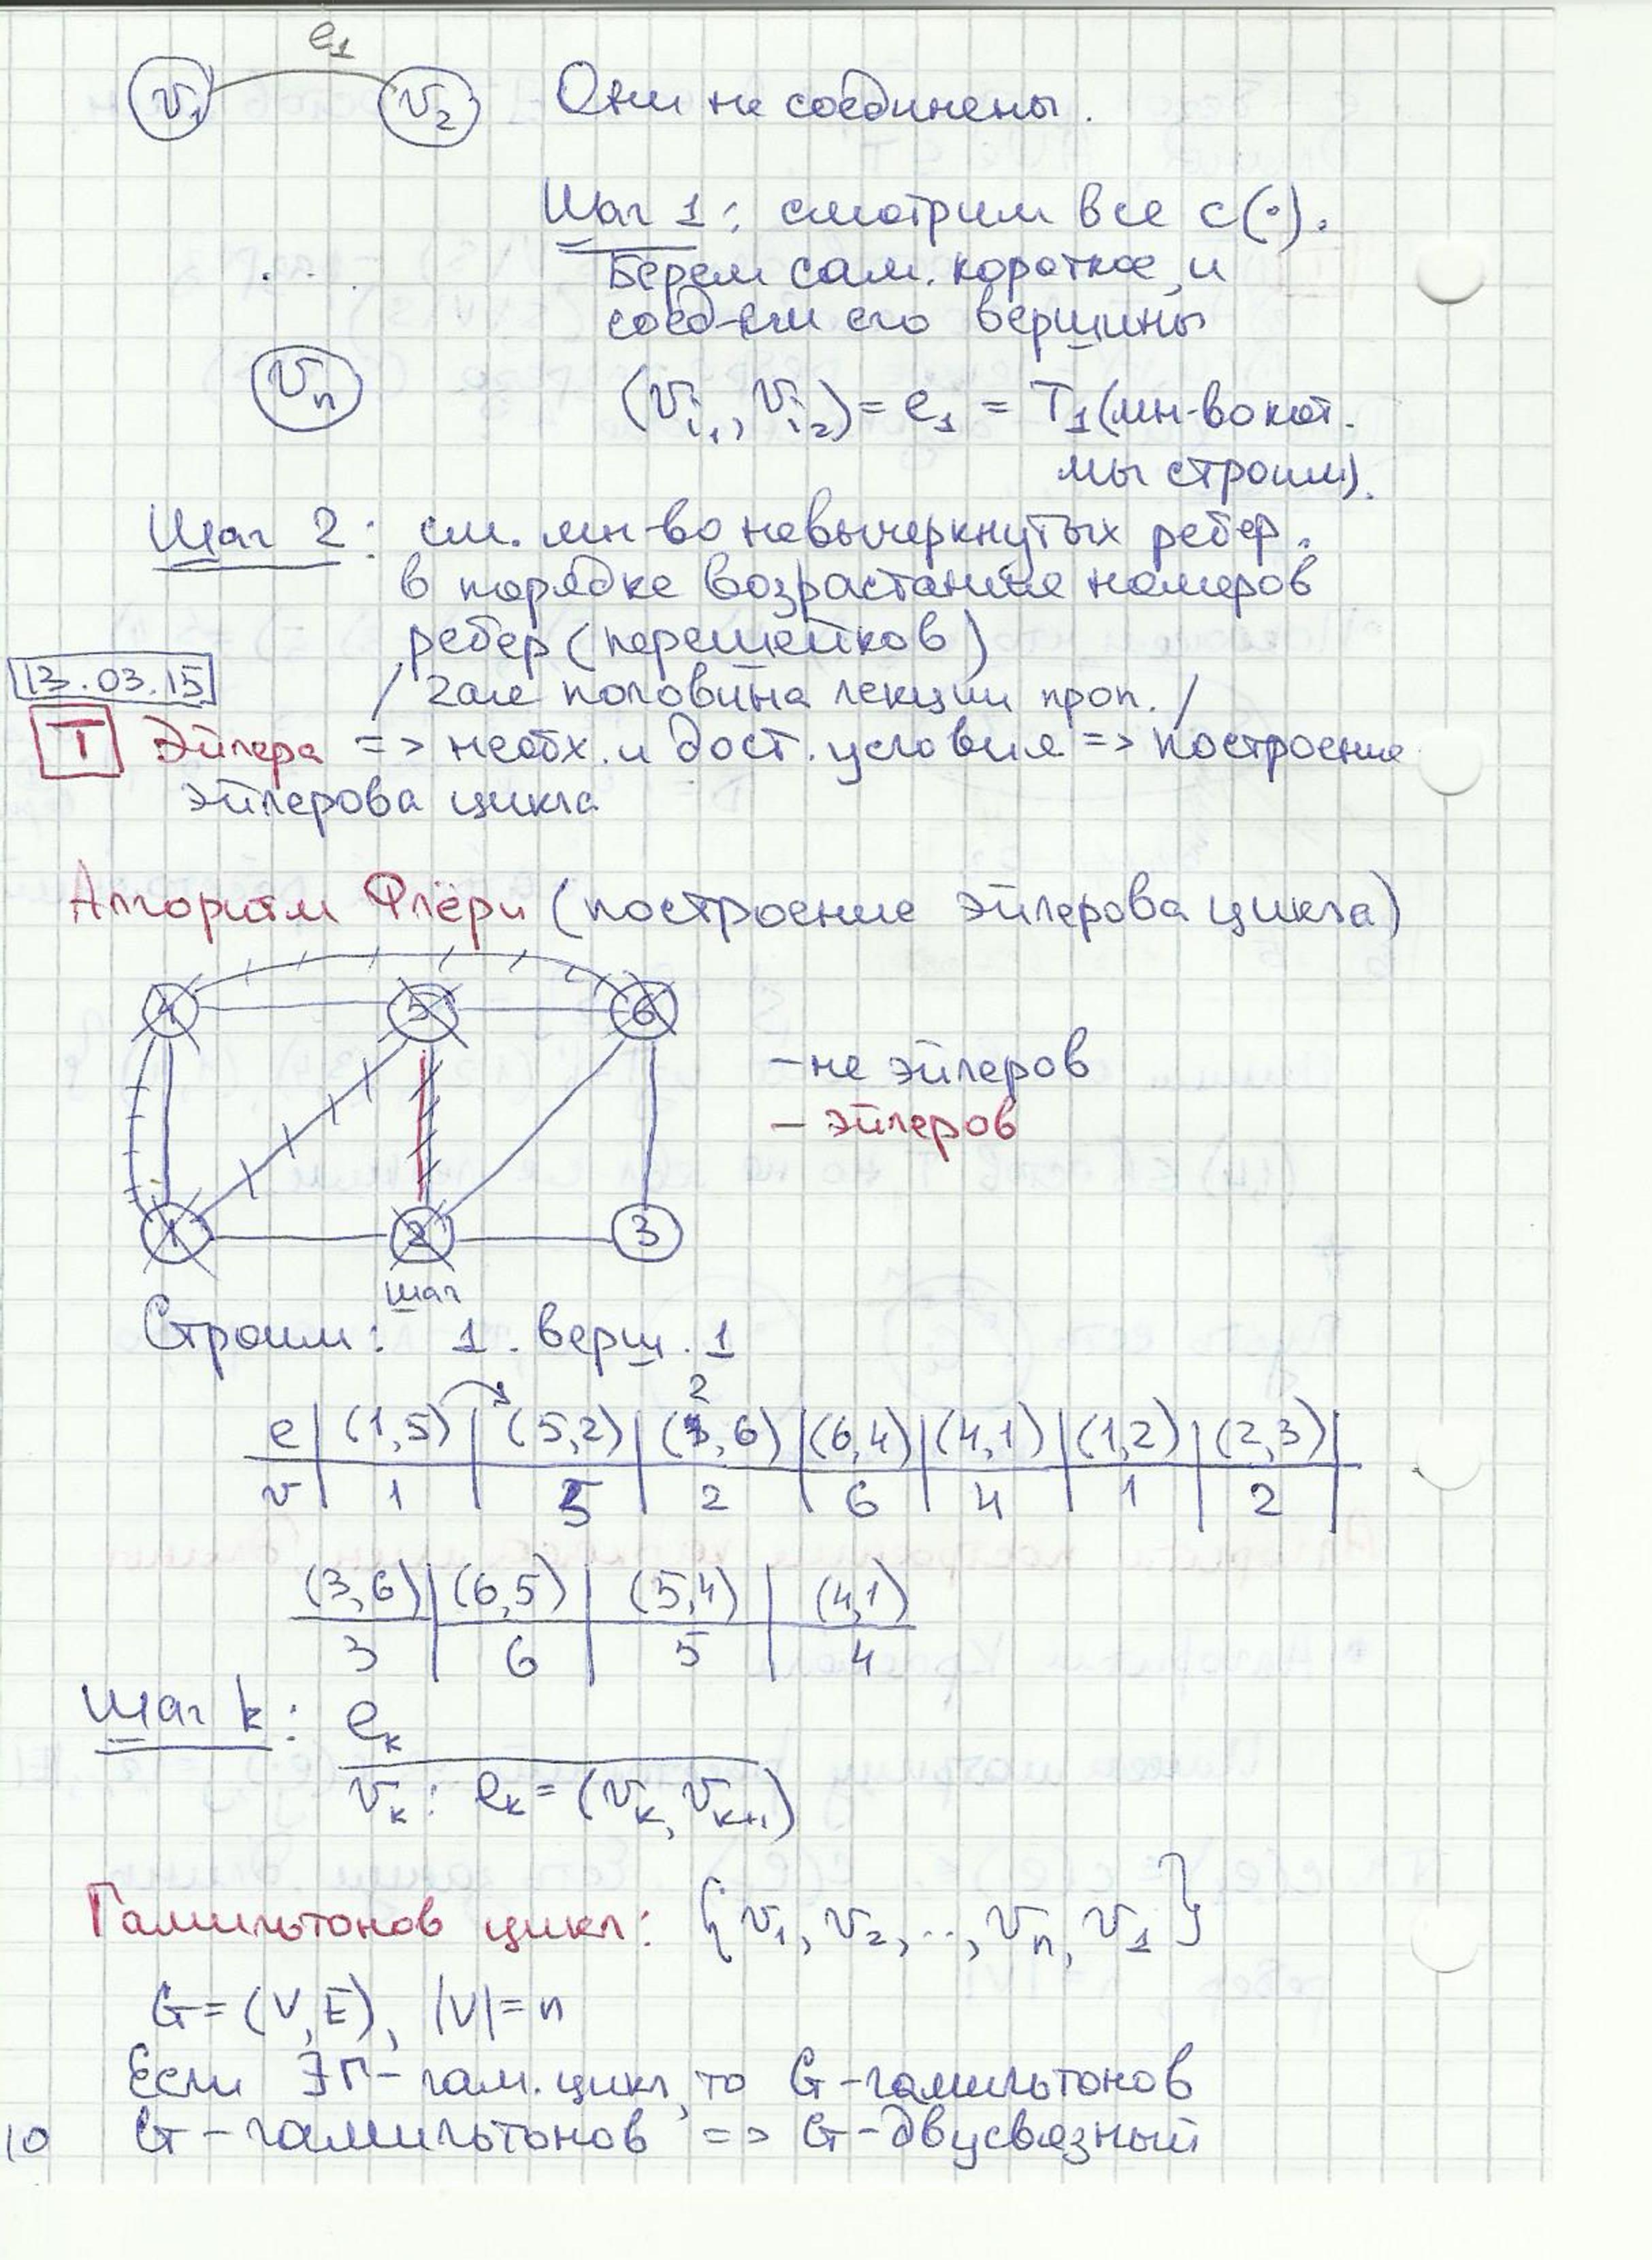 e1
v1 v2 Они не соединены.
Шаг 1: смотрим все c(·).
Берем сам. короткое, и
соед-ем его вершины
vn (vi1, vi2) = e1 = T1 (мн-во кот.
мы строим).
Шаг 2: см. мн-во невычеркнутых ребер.
в порядке возрастание номеров
ребер (перешейков)
13.03.15 / половина лекции проп. /
Т Эйлера => необх. и дост. условия => построение
эйлерова цикла
Алгоритм Флёри (построение эйлерова цикла)
4 5 6
- не эйлеров
- эйлеров
1 2 3
шаг
Строим: 1. верш. 1
2
e | (1,5) | (5,2) | (5,6) | (6,4) | (4,1) | (1,2) | (2,3) |
v | 1 | 5 | 2 | 6 | 4 | 1 | 2 |
(3,6) | (6,5) | (5,4) | (4,1)
3 | 6 | 5 | 4
Шаг k: ek
vk: ek = (vk, vk+1)
Гамильтонов цикл: {v1, v2, .., vn, v1}
G = (V, E), |V| = n
Если ∃ Г - гам. цикл, то G - гамильтонов
10 G - гамильтонов => G - двусвязный